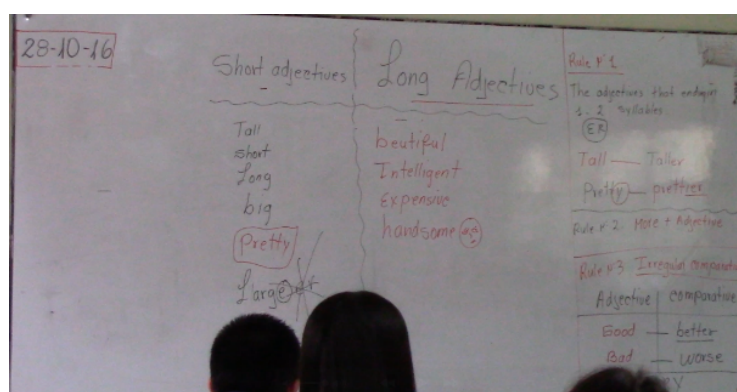 28-10-16
Short adjectives
Long Adjectives
Tall
short
Long
big
Pretty
Large
beutiful
Intelligent
Expensive
handsome
Rule Nº 1
The adjectives that ending in
1, 2 syllables
ER
Tall — Taller
Pretty — prettier
Rule Nº 2: More + Adjective
Rule Nº 3 Irregular comparati
Adjective comparative
Good — better
Bad — worse